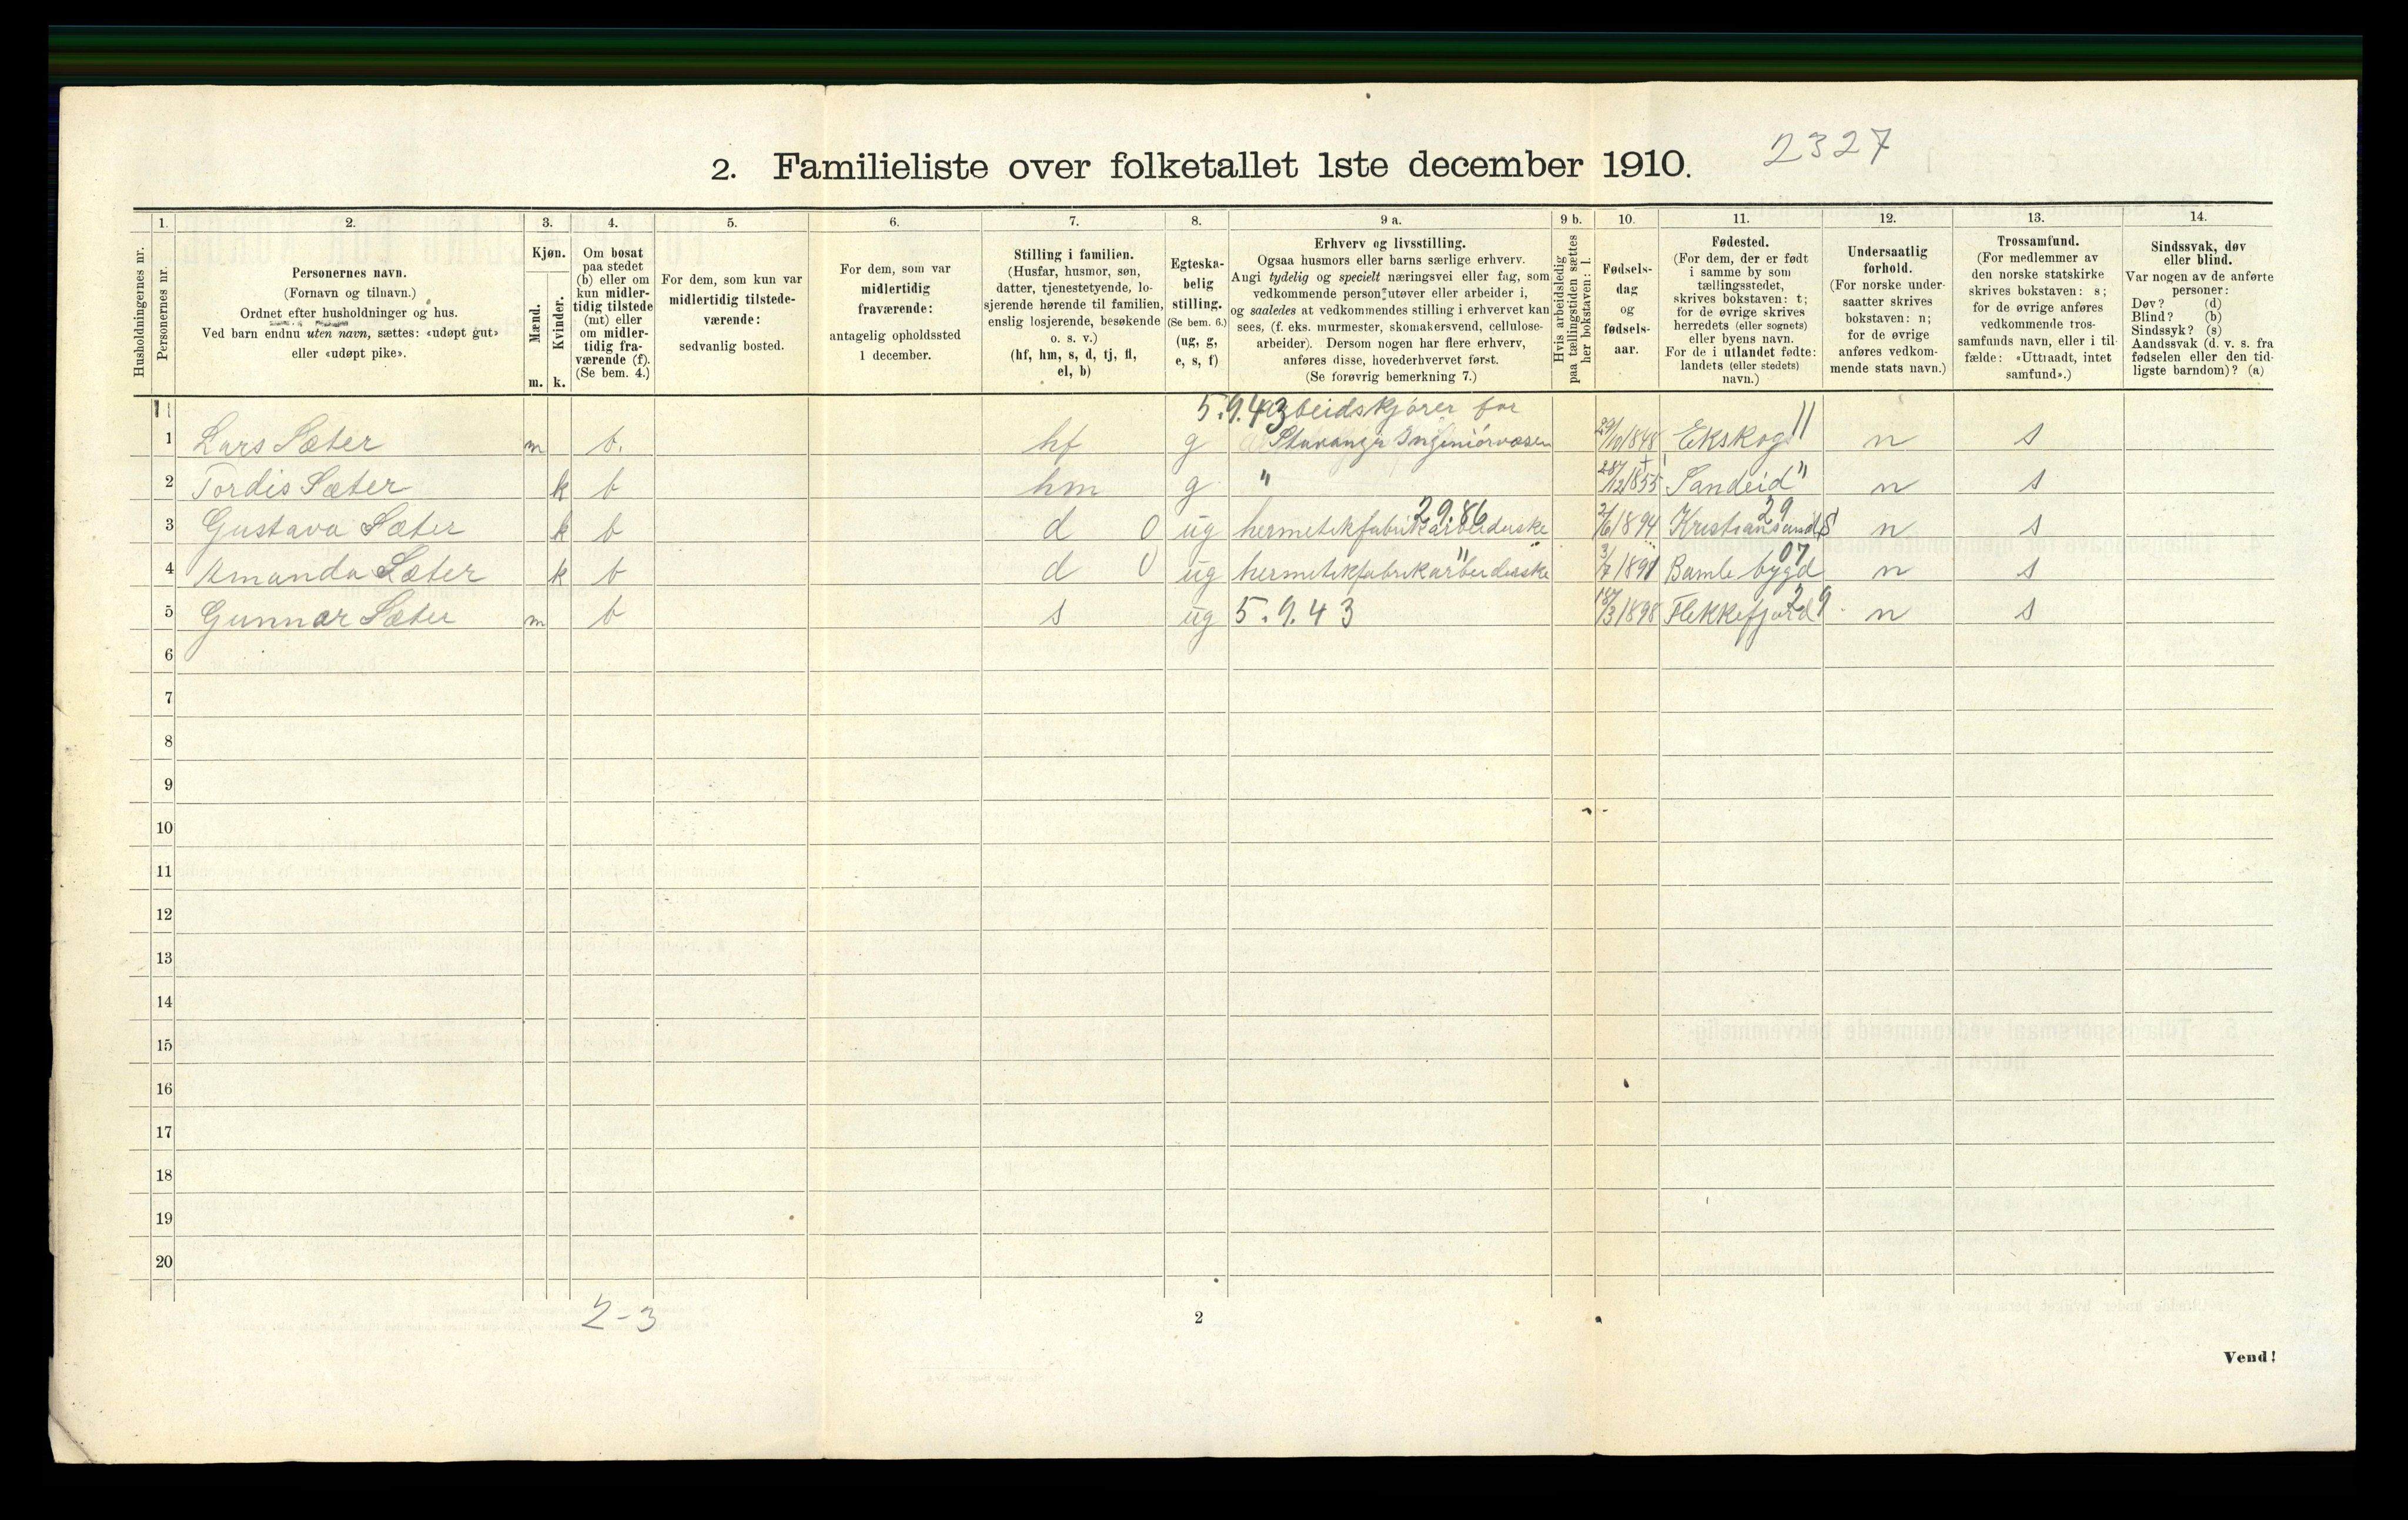 2. Familieliste over folketallet 1ste december 1910.
2327
Husholdningernes nr.
1.
Personernes nr.
2.
Personernes navn.
(Fornavn og tilnavn.)
Ordnet efter husholdninger og hus.
Ved barn endnu uten navn, sættes: «udøpt gut»
eller «udøpt pike».
3.
Kjøn.
Mænd.
Kvinder.
m. k.
4.
Om bosat
paa stedet
(b) eller om
kun midler-
tidig tilstede
(mt) eller
om midler-
tidig fra-
værende (f).
(Se bem. 4.)
5.
For dem, som kun var
midlertidig tilstede-
værende:
sedvanlig bosted.
6.
For dem, som var
midlertidig
fraværende:
antagelig opholdssted
1 december.
7.
Stilling i familien.
(Husfar, husmor, søn,
datter, tjenestetyende, lo-
sjerende hørende til familien,
enslig losjerende, besøkende
o. s. v.)
(hf, hm, s, d, tj, fl,
el, b)
8.
Egteska-
belig
stilling.
(Se bem. 6.)
(ug, g,
e, s, f)
9 a.
Erhverv og livsstilling.
Ogsaa husmors eller barns særlige erhverv.
Angi tydelig og specielt næringsvei eller fag, som
vedkommende person utøver eller arbeider i,
og saaledes at vedkommendes stilling i erhvervet kan
sees, (f. eks. murmester, skomakersvend, cellulose-
arbeider). Dersom nogen har flere erhverv,
anføres disse, hovederhvervet først.
(Se forøvrig bemerkning 7.)
9 b.
Hvis arbeidsledig
paa tællingstiden sættes
her bokstaven: l.
10.
Fødsels-
dag
og
fødsels-
aar.
11.
Fødested.
(For dem, der er født
i samme by som
tællingsstedet,
skrives bokstaven: t;
for de øvrige skrives
herredets (eller sognets)
eller byens navn.
For de i utlandet fødte:
landets (eller stedets)
navn.)
12.
Undersaatlig
forhold.
(For norske under-
saatter skrives
bokstaven: n;
for de øvrige
anføres vedkom-
mende stats navn.)
13.
Trossamfund.
(For medlemmer av
den norske statskirke
skrives bokstaven: s;
for de øvrige anføres
vedkommende tros-
samfunds navn, eller i til-
fælde: «Uttraadt, intet
samfund».)
14.
Sindssvak, døv
eller blind.
Var nogen av de anførte
personer:
Døv? (d)
Blind? (b)
Sindssyk? (s)
Aandssvak (d. v. s. fra
fødselen eller den tid-
ligste barndom)? (a)
5.9.43 Arbeidskjører for
1 Lars Sæter m b. hf g Stavanger Ingeniørvæsen 29/10 1848 Ekskog 11 n s
2 Tordis Sæter k b hm g " 28/12 1855 Sandeid " n s
3 Gustava Sæter k b d 0 ug hermetikfabrikarbeiderske 29.86 2/6 1894 Kristiansand S 29 n s
4 Amanda Sæter k b d 0 ug hermetikfabrikarbeiderske " 3/7 1891 Bamle bygd 07 n s
5 Gunnar Sæter m b s ug 5.9.43 18/3 1898 Flekkefjord 29 n s
6
7
8
9
10
11
12
13
14
15
16
17
18
19
20
2-3
2
Vend!